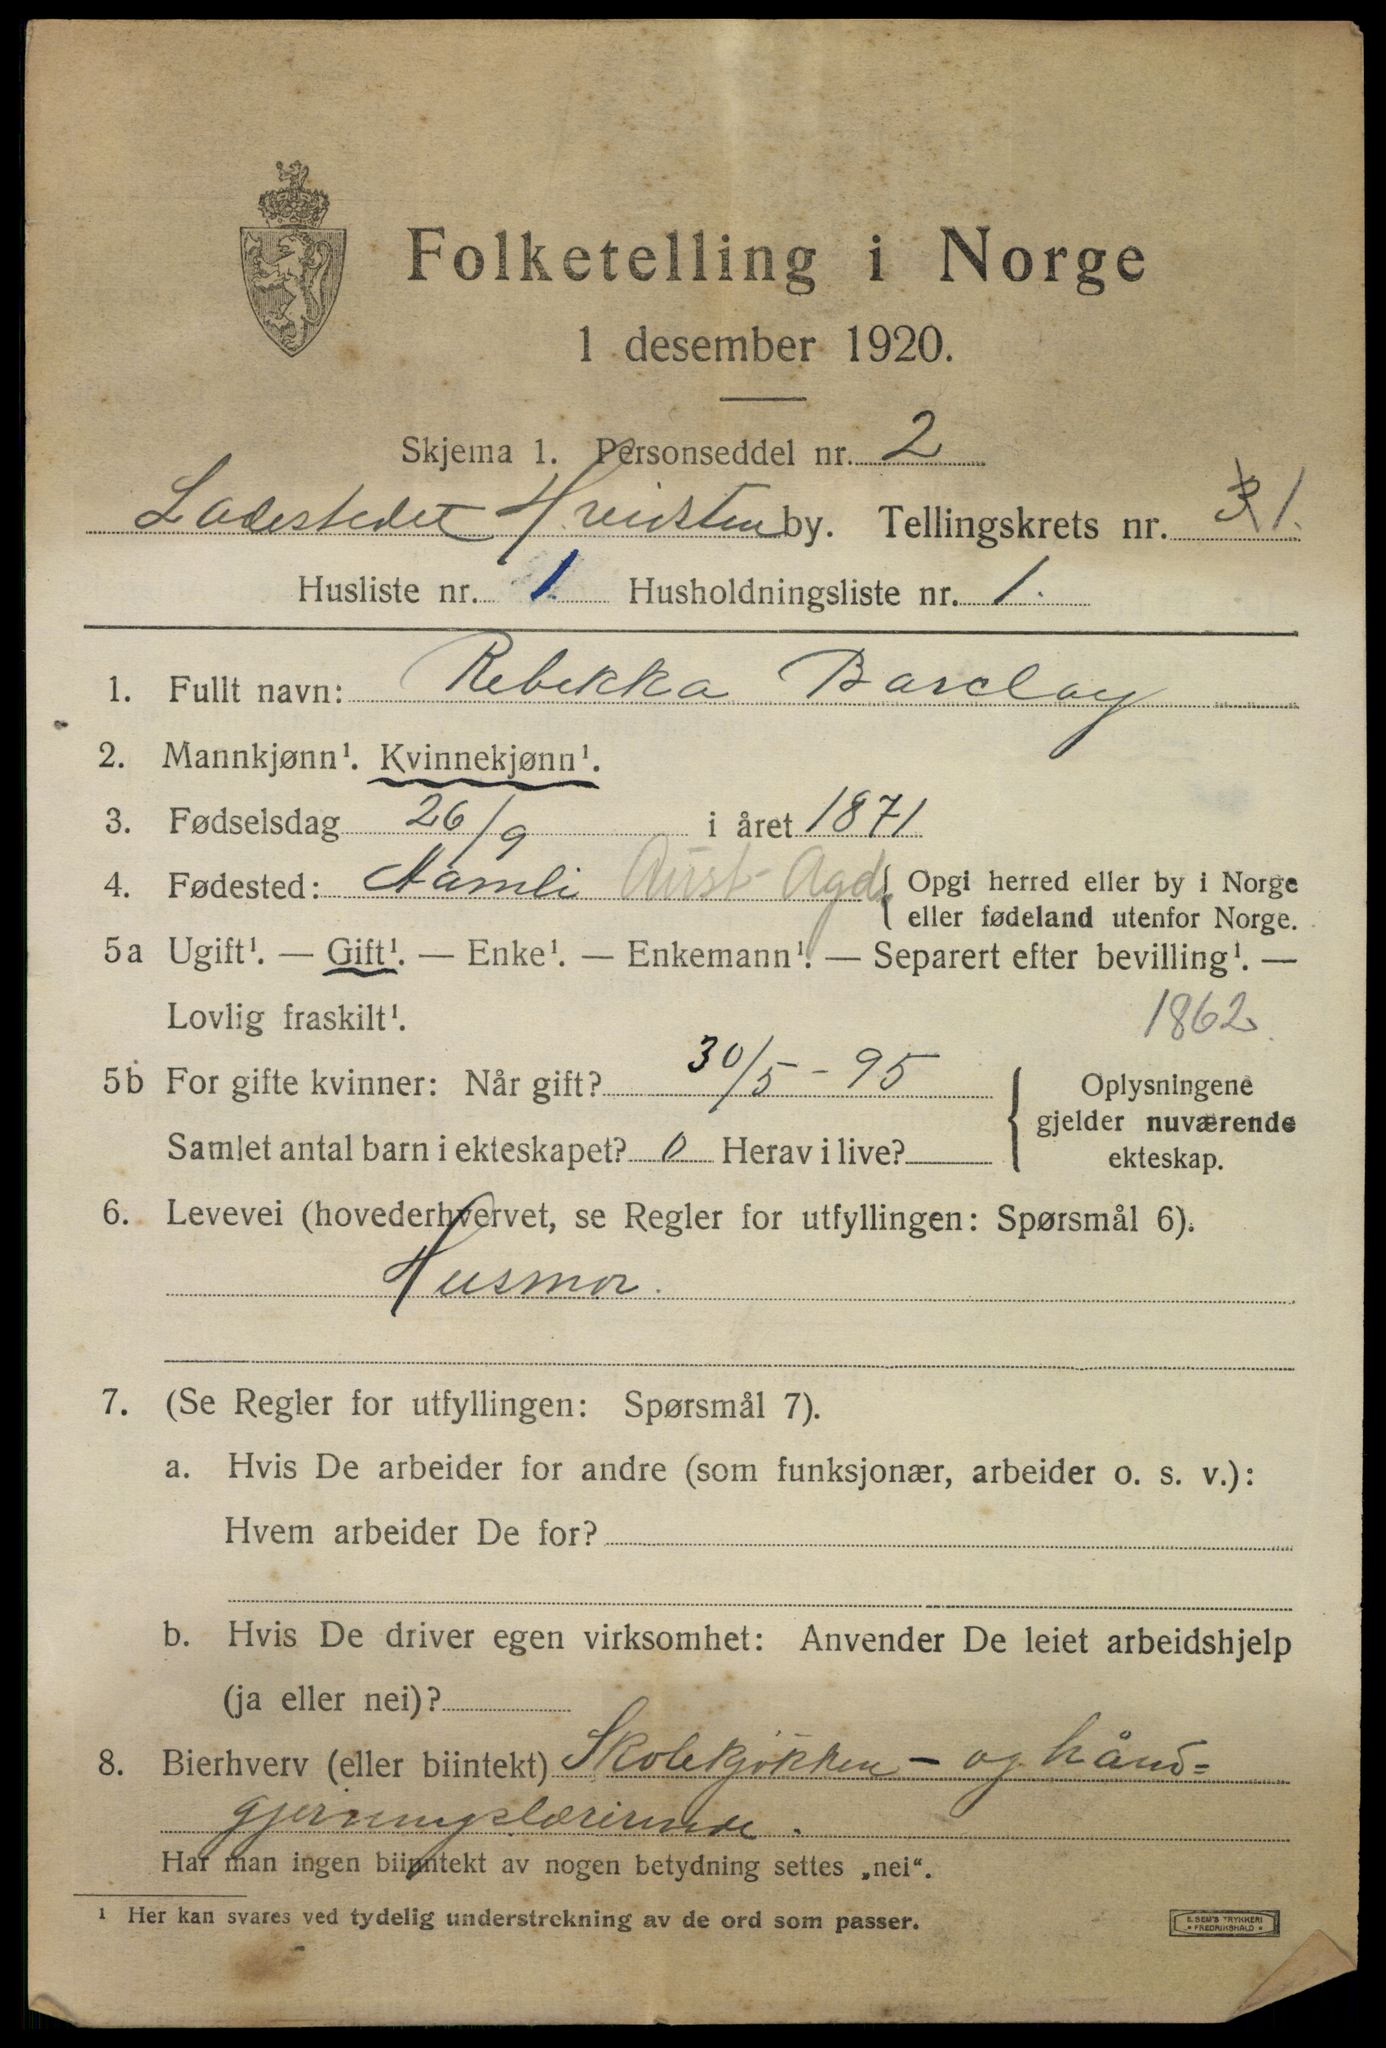 Folketelling i Norge
1 desember 1920.
Skjema 1. Personseddel nr. 2
Ladestedet Hvitsten by. Tellingskrets nr. 3 1.
Husliste nr. 1 Husholdningsliste nr. 1.
1. Fullt navn: Rebekka Barclay
2. Mannkjønn¹. Kvinnekjønn¹.
3. Fødselsdag 26/9 i året 1871
4. Fødested: Aamli Aust-Agd. { Opgi herred eller by i Norge
eller fødeland utenfor Norge.
5a Ugift¹. — Gift¹. — Enke¹. — Enkemann¹. — Separert efter bevilling¹. —
Lovlig fraskilt¹. 1862
5b For gifte kvinner: Når gift? 30/5 - 95
Samlet antal barn i ekteskapet? 0 Herav i live?
{ Oplysningene
gjelder nuværende
ekteskap.
6. Levevei (hovederhvervet, se Regler for utfyllingen: Spørsmål 6).
Husmor.
7. (Se Regler for utfyllingen: Spørsmål 7).
a. Hvis De arbeider for andre (som funksjonær, arbeider o. s. v.):
Hvem arbeider De for?
b. Hvis De driver egen virksomhet: Anvender De leiet arbeidshjelp
(ja eller nei)?
8. Bierhverv (eller biintekt) Skolekjøkken - og hånd=
gjerningslærerinde.
Har man ingen biinntekt av nogen betydning settes „nei“.
¹ Her kan svares ved tydelig understrekning av de ord som passer.
E. SEM'S TRYKKERI
• FREDRIKSHALD •